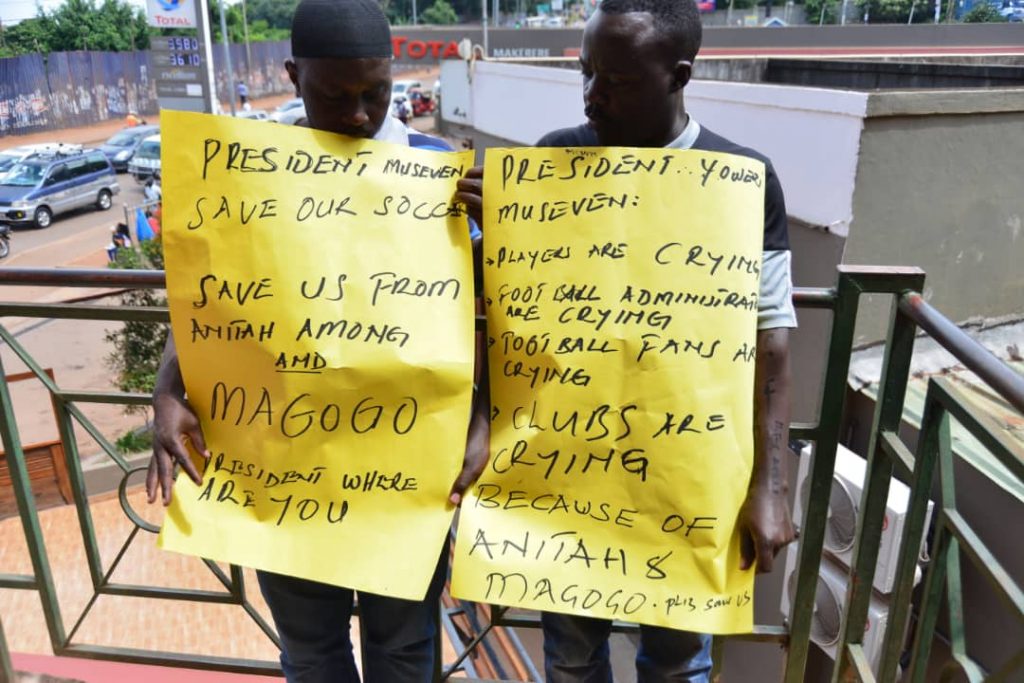 TOTAL
3580
3610
TOTA
MAKERERE
PRESIDENT MUSEVEN
SAVE OUR SOCC
SAVE US FROM
ANITAH AMONG
AND
MAGOGO
PRESIDENT WHERE
ARE YOU
PRESIDENT.. YOWER
MUSEVEN:
PLAYERS ARE CRYING
FOOTBALL ADMINISTRAT
ARE CRYING
FOOTBALL FANS AR
CRYING
CLUBS ARE
CRYING
BECAUSE OF
ANITAH &
MAGOGO.